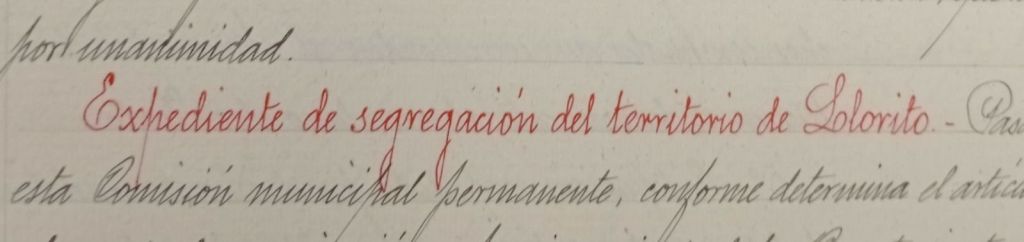 por unanimidad.
Expediente de segregación del territorio de Lolorito.-
esta Comisión municipal permanente, conforme determina el